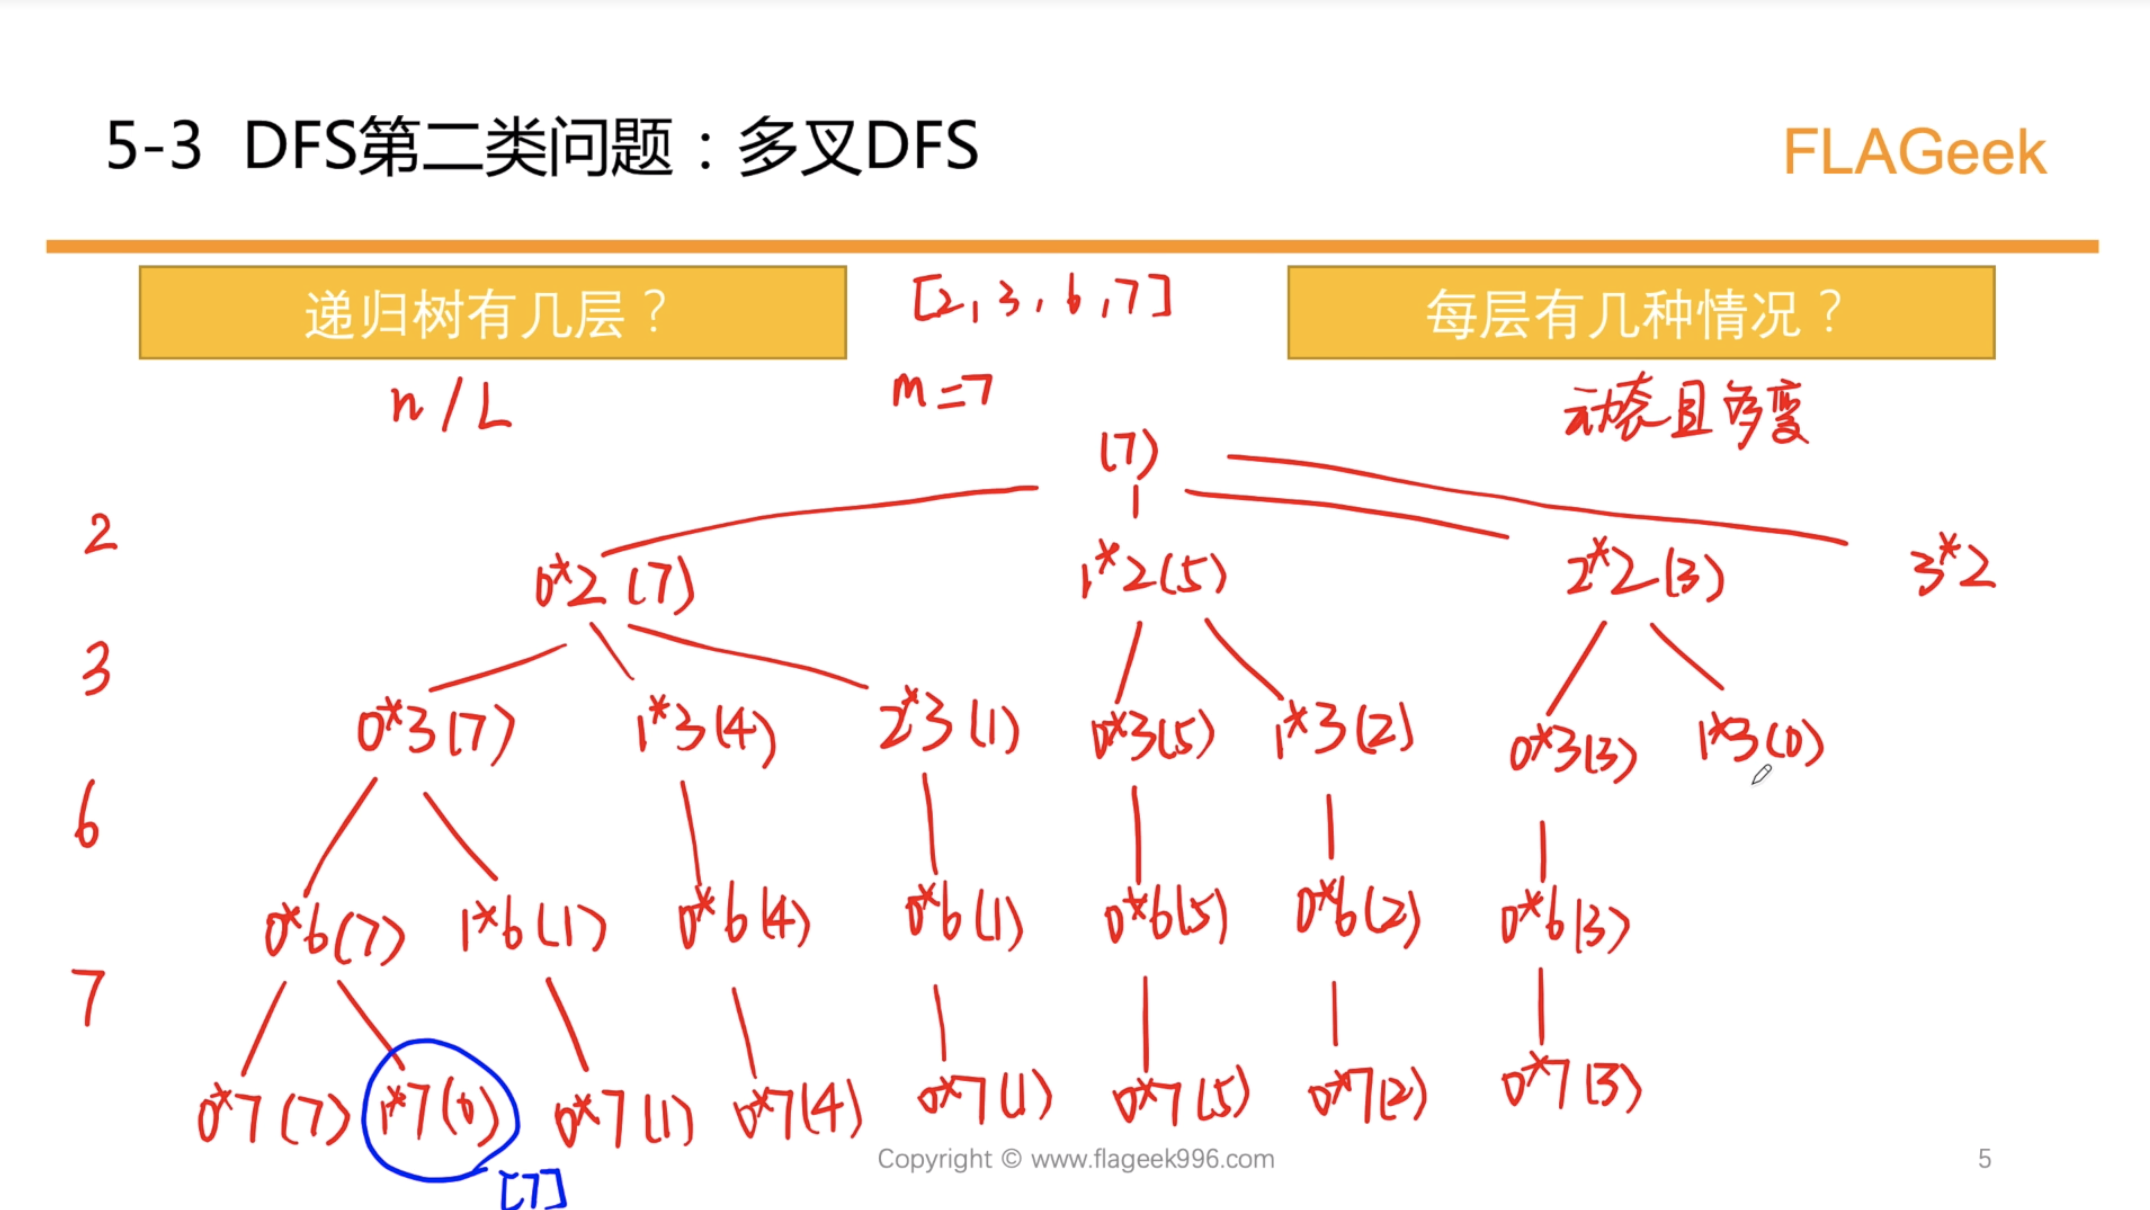 5-3 DFS第二类问题：多叉DFS
FLAGeek
递归树有几层？
[2,3,6,7]
每层有几种情况？
n/L
m=7
动态且多变
(7)
2
0*2(7) 1*2(5) 2*2(3) 3*2
3
0*3(7) 1*3(4) 2*3(1) 0*3(5) 1*3(2) 0*3(3) 1*3(0)
6
0*6(7) 1*6(1) 0*6(4) 0*6(1) 0*6(5) 0*6(2) 0*6(3)
7
0*7(7) 1*7(0) 0*7(1) 0*7(4) 0*7(1) 0*7(5) 0*7(2) 0*7(3)
[7]
Copyright © www.flageek996.com
5